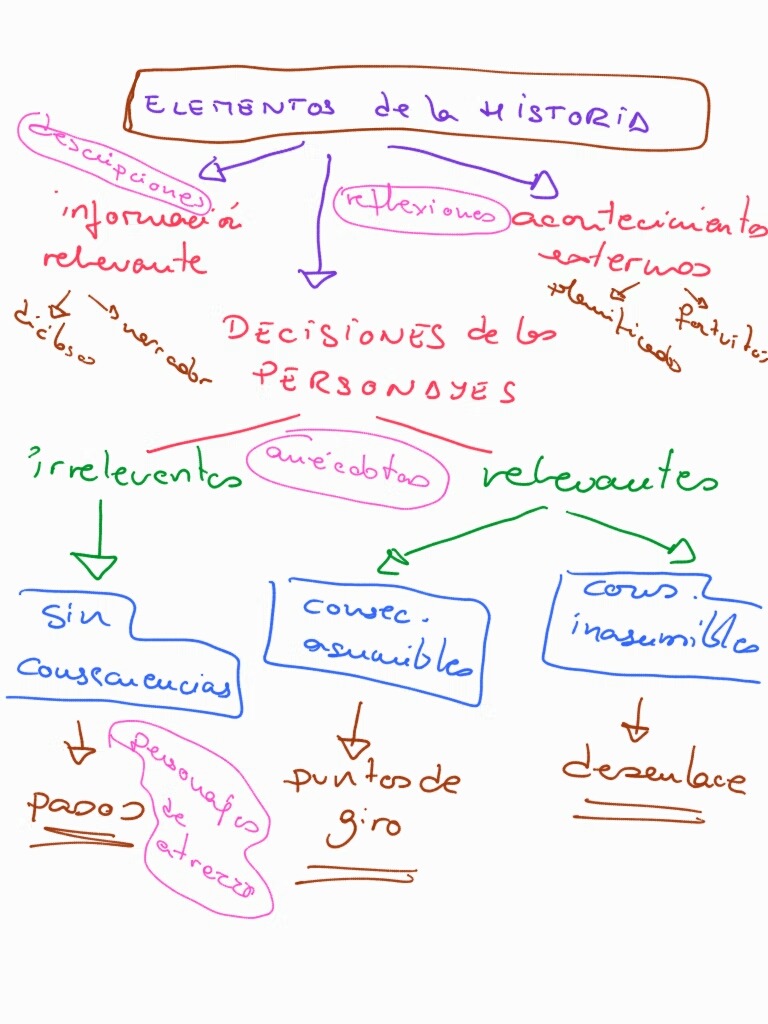 ELEMENTOS de la HISTORIA
descripciones
reflexiones
información
relevante
acontecimientos
externos
narrador
planificados
fortuitos
DECISIONES de los
PERSONAJES
irrelevantes
anécdotas
relevantes
sin
consecuencias
consec.
asumibles
cons.
inasumibles
pasos
personajes
de
atrezzo
puntos de
giro
desenlace